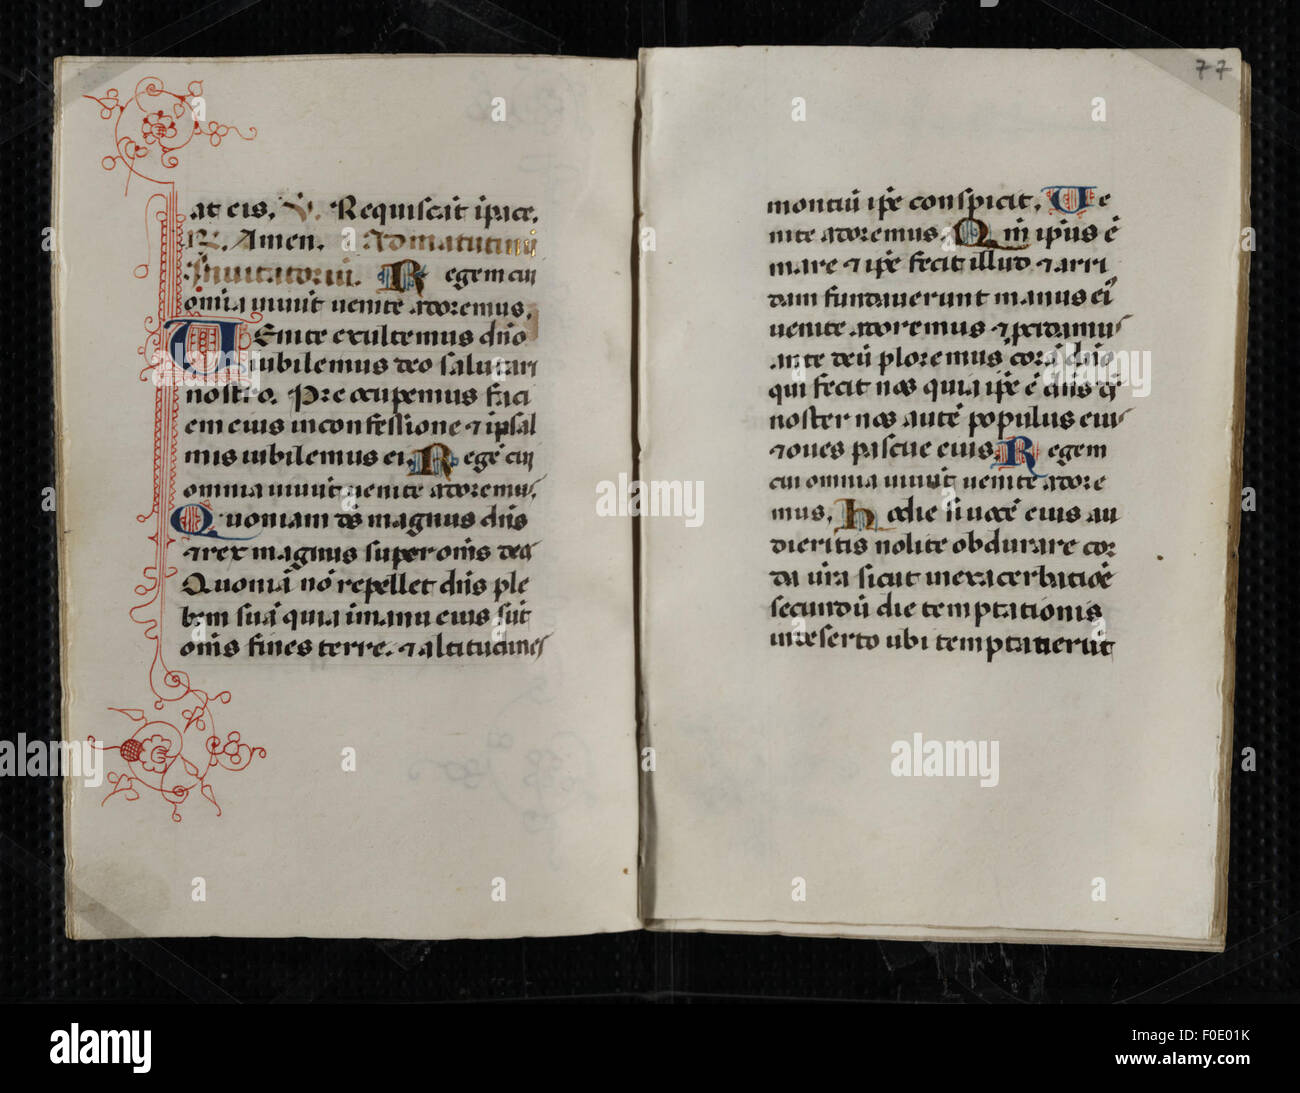 77
at eis. V. Requiscāt ī pace.
R. Amen. Ad matutinū
Inuitatoriū. Regem cui
omīa uiuūt uenite adoremus.
Uenite exultemus dn̄o
iubilemus deo salutari
nostro. Preocupemus faci
em eius in confessione ⁊ ī psal
mis iubilemus ei. Regē cui
omnia uiuūt uenite adoremu.
Quoniam dn̄s magnus dn̄s
⁊ rex magnus super om̄s
Quoniā nō repellet dn̄s ple
bem suā quia ī manu eius sūt
om̄s fines terre. ⁊ altitudines
montiū ip̄e conspicit. Ue
nite adoremus. Qm̄ ipīus ē
mare ⁊ ip̄e fecit illud ⁊ arri
dam fundauerunt manus ei᾽
uenite adoremus ⁊ p̄cidamu
ante deū ploremus corā dn̄o
qui fecit nos quia ip̄e ē dn̄s
noster nos autē populus eiu
⁊ oues pascue eius. Regem
cui omnia uiuūt uenite adore
mus. Hodie si uocē eius au
dieritis nolite obdurare cor
da vr̄a sicut in exacerbatiōe
secundū die temptationis
in deserto ubi temptauerūt
alamy
alamy
alamy
Image ID: F0E01K
www.alamy.com